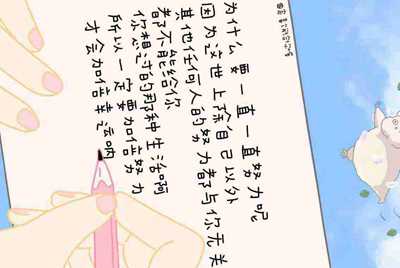 为什么要一直一直努力呢
因为这世上除自己以外
其他任何人的努力都与你无关
都不能给你
你想过的那种生活啊
所以一定要加倍努力
才会加倍幸运呐